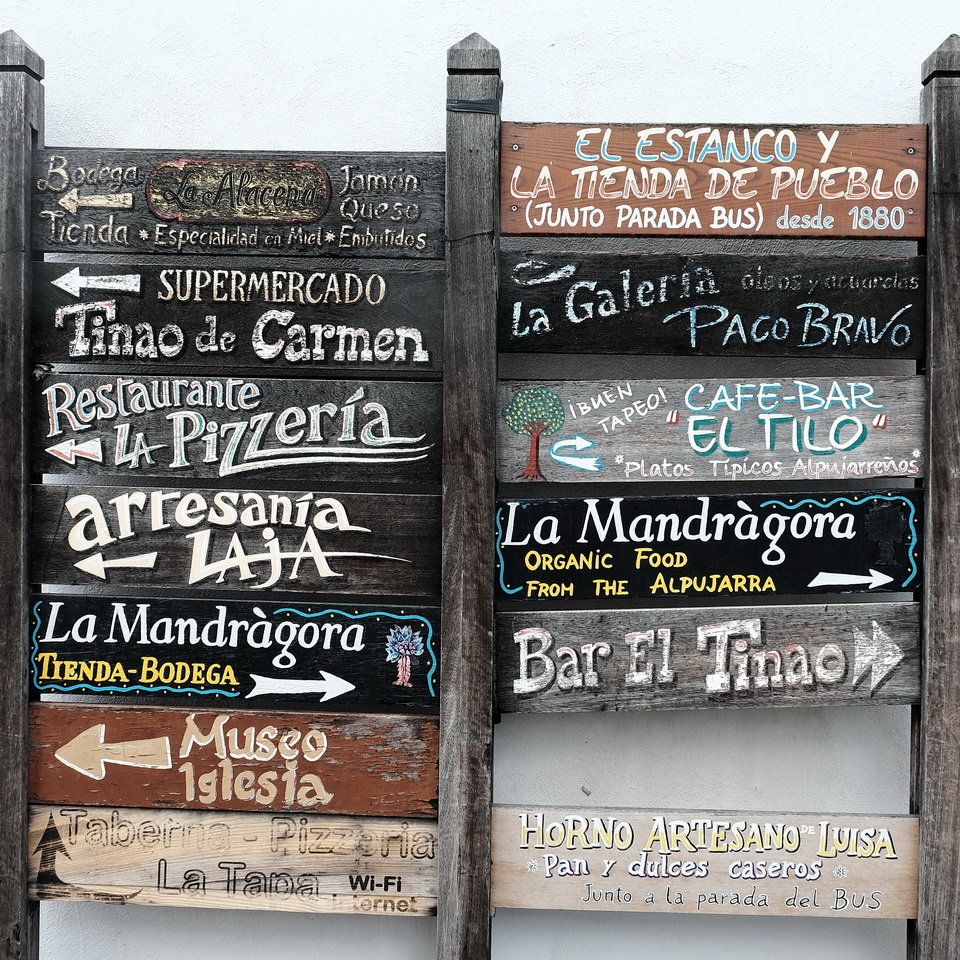 Bodega La Alacena Jamón
Queso
Tienda *Especialidad en Miel* Embutidos
SUPERMERCADO
Tinao de Carmen
Restaurante
LA Pizzería
artesanía
LAjA
La Mandràgora
TIENDA-BODEGA
Museo
Iglesia
Taberna - Pizzeria
La Tapa Wi-Fi
EL ESTANCO Y
LA TIENDA DE PUEBLO
(JUNTO PARADA BUS) desde 1880
La Galeria óleos y acuarelas
PACO BRAVO
¡BUEN TAPEO!
CAFE-BAR
"EL TILO"
*Platos Típicos Alpujarreños*
La Mandràgora
ORGANIC FOOD
FROM THE ALPUJARRA
Bar El Tinao
HORNO ARTESANO DE LUISA
*Pan y dulces caseros*
Junto a la parada del BUS